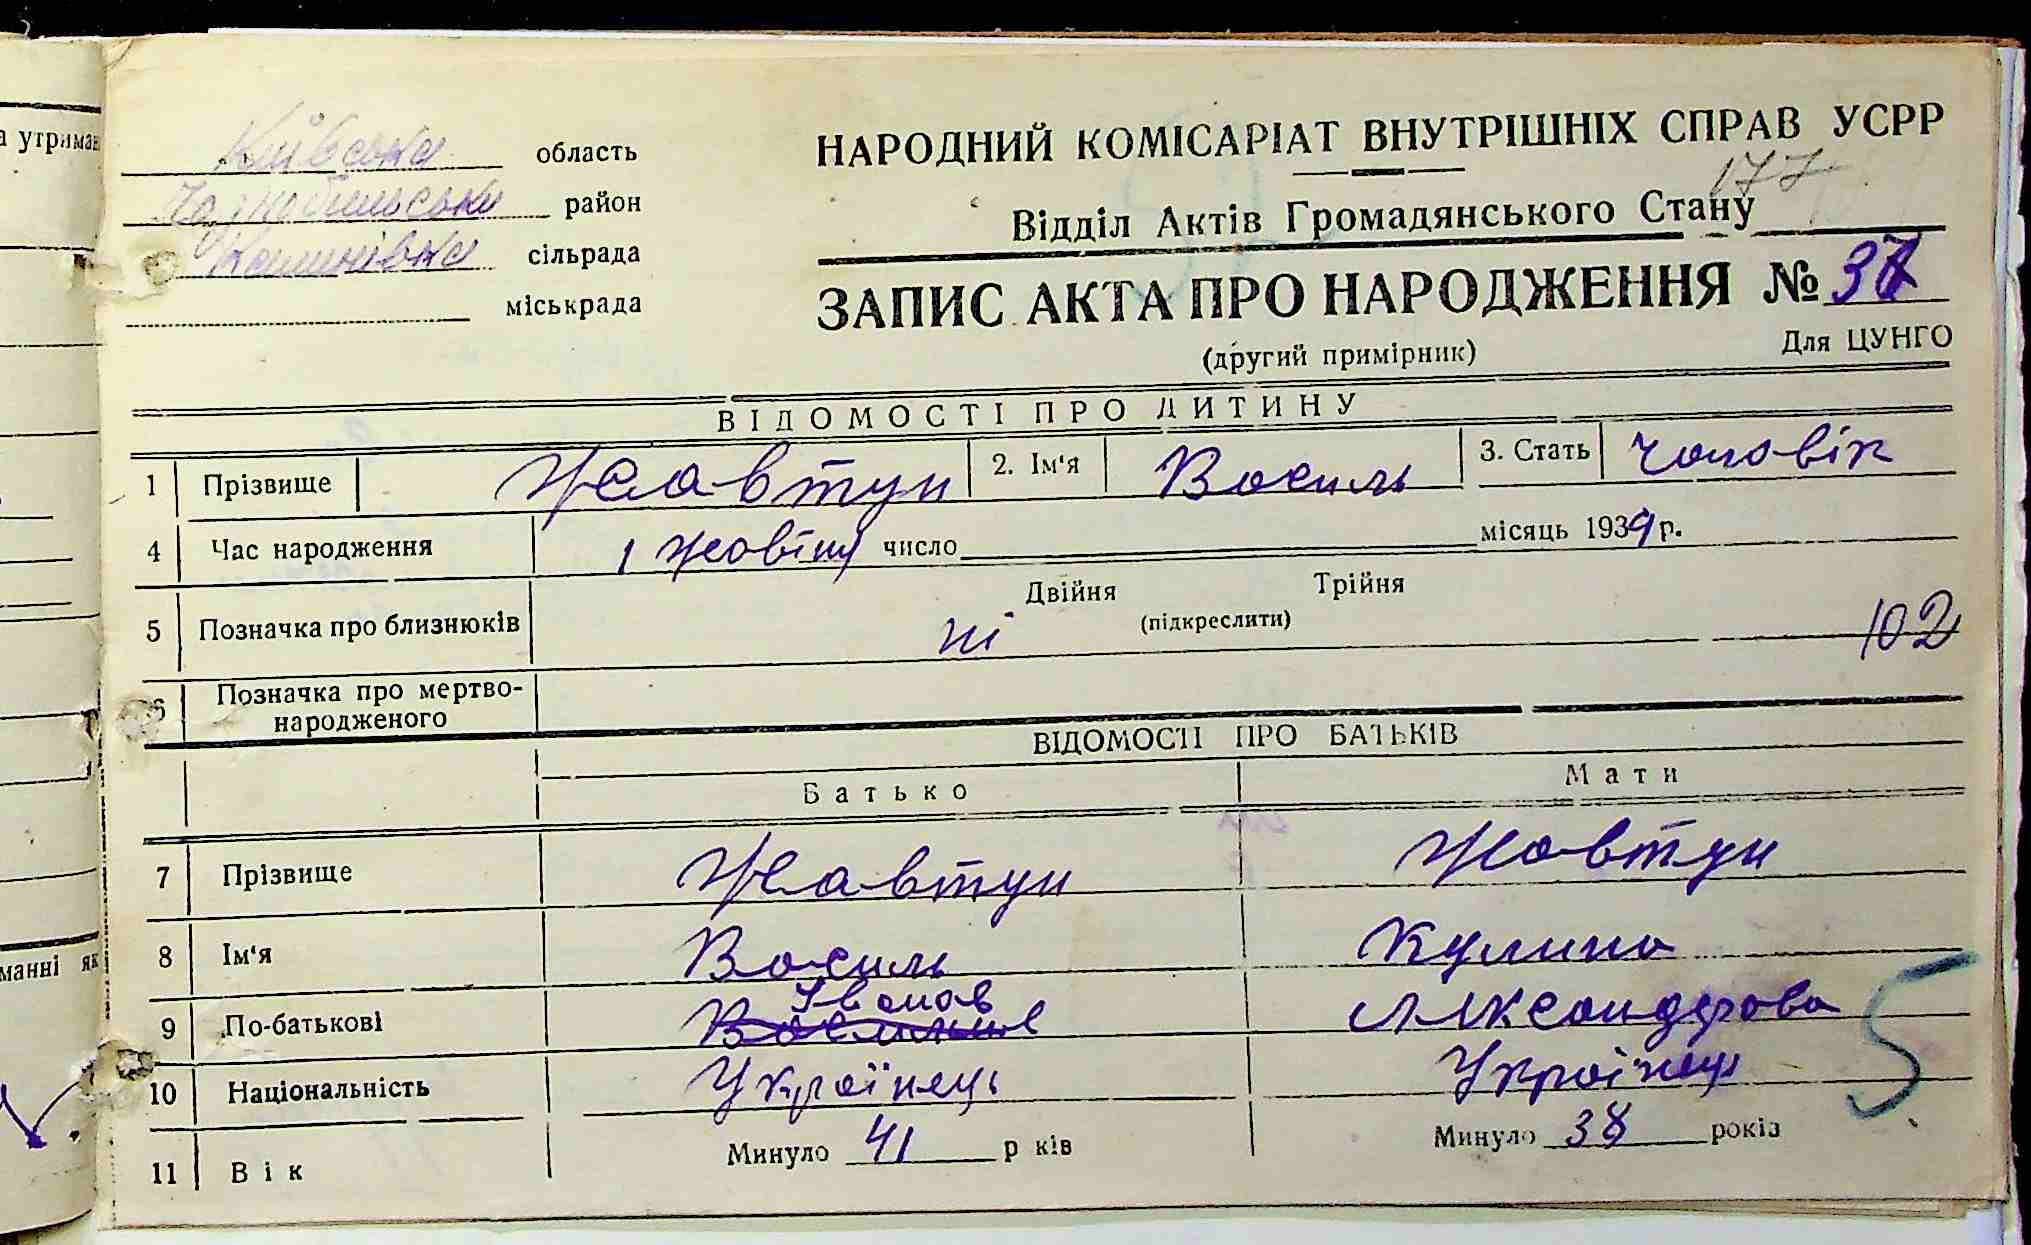 а утриман
манні як
Київська область
Чорнобильськи район
сільрада
міськрада
НАРОДНИЙ КОМІСАРІАТ ВНУТРІШНІХ СПРАВ УСРР
177
Відділ Актів Громадянського Стану
ЗАПИС АКТА ПРО НАРОДЖЕННЯ № 37
(другий примірник) Для ЦУНГО
ВІДОМОСТІ ПРО ДИТИНУ
1 Прізвище Жавтун 2. Ім'я Василь 3. Стать чоловік
4 Час народження 1 число місяць 1939 р.
5 Позначка про близнюків ні Двійня Трійня
(підкреслити)
102
6 Позначка про мертво-
народженого
ВІДОМОСТІ ПРО БАТЬКІВ
Батько Мати
7 Прізвище Жавтун Жавтун
8 Ім'я Василь Кулина
9 По-батькові Іванов Александрова
10 Національність Українець Українец
5
11 Вік Минуло 41 р ків Минуло 38 років